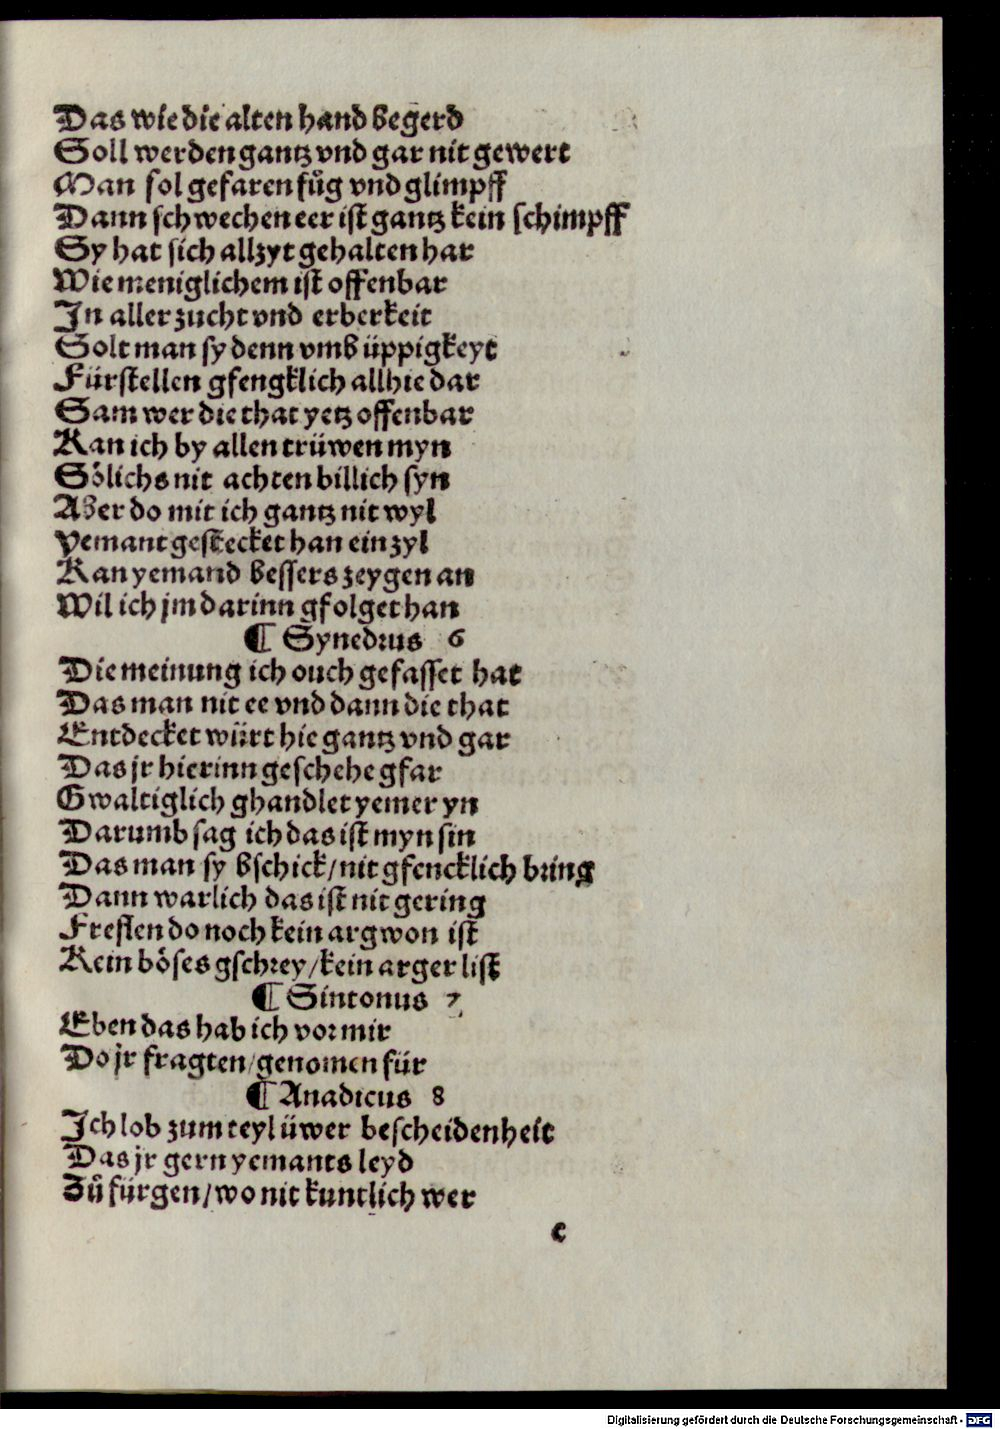 Das wie die alten hand begerd
Soll werden gantz vnd gar nit gewert
Man sol gefaren fůg vnd glimpff
Dann schwechen eer ist gantz kein schimpff
Sy hat sich allzyt gehalten har
Wie meniglichem ist offenbar
In aller zucht vnd erberkeit
Solt man sy denn vmb üppigkeyt
Fürstellen gfengklich allhie dar
Sam wer die that yetz offenbar
Kan ich by allen trüwen myn
Sölichs nit achten billich syn
Aber do mit ich gantz nit wyl
Yemant gestecket han ein zyl
Kan yemand bessers zeygen an
Wil ich jm darinn gfolget han
¶ Synedrus 6
Die meinung ich ouch gefasset hat
Das man nit ee vnd dann die that
Entdecket würt hie gantz vnd gar
Das jr hierinn geschehe gfar
Gwaltiglich ghandlet yemer yn
Darumb sag ich das ist myn sin
Das man sy bschick/nit gfencklich bring
Dann warlich das ist nit gering
Freflen do noch kein argwon ist
Kein böses gschrey/kein arger list
¶ Sintonus 7
Eben das hab ich vor mir
Do jr fragten/genomen für
¶ Anadicus 8
Ich lob zum teyl üwer bescheidenheit
Das jr gern yemants leyd
Zů fürgen/wo nit kuntlich wer
c
Digitalisierung gefördert durch die Deutsche Forschungsgemeinschaft - DFG